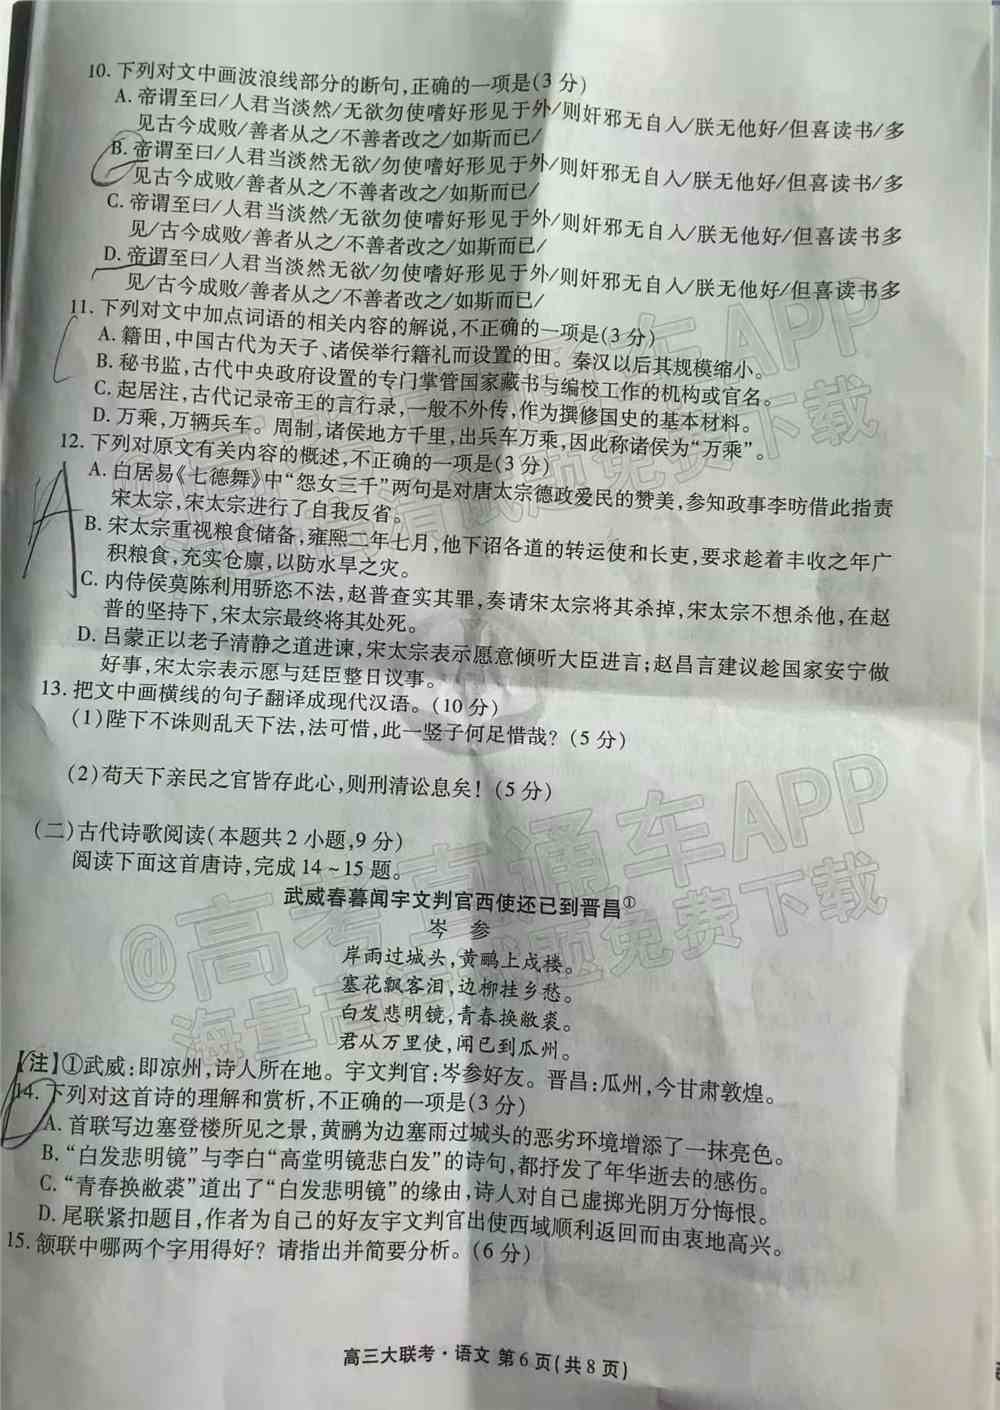 10. 下列对文中画波浪线部分的断句,正确的一项是(3分)
A. 帝谓至曰/人君当淡然/无欲勿使嗜好形见于外/则奸邪无自人/朕无他好/但喜读书/多
见古今成败/善者从之/不善者改之/如斯而已/
B. 帝谓至曰/人君当淡然无欲/勿使嗜好形见于外/则奸邪无自人/朕无他好/但喜读书/多
见古今成败/善者从之/不善者改之/如斯而已/
C. 帝谓至曰/人君当淡然/无欲勿使嗜好形见于外/则奸邪无自人/朕无他好/但喜读书多
见/古今成败/善者从之/不善者改之/如斯而已/
D. 帝谓至曰/人君当淡然无欲/勿使嗜好形见于外/则奸邪无自人/朕无他好/但喜读书多
见/古今成败/善者从之/不善者改之/如斯而已/
11. 下列对文中加点词语的相关内容的解说,不正确的一项是(3分)
A. 籍田,中国古代为天子、诸侯举行籍礼而设置的田。秦汉以后其规模缩小。
B. 秘书监,古代中央政府设置的专门掌管国家藏书与编校工作的机构或官名。
C. 起居注,古代记录帝王的言行录,一般不外传,作为撰修国史的基本材料。
D. 万乘,万辆兵车。周制,诸侯地方千里,出兵车万乘,因此称诸侯为“万乘”。
12. 下列对原文有关内容的概述,不正确的一项是(3分)
A
A. 白居易《七德舞》中“怨女三千”两句是对唐太宗德政爱民的赞美,参知政事李昉借此指责
宋太宗,宋太宗进行了自我反省。
B. 宋太宗重视粮食储备,雍熙二年七月,他下诏各道的转运使和长吏,要求趁着丰收之年广
积粮食,充实仓廪,以防水旱之灾。
C. 内侍侯莫陈利用骄恣不法,赵普查实其罪,奏请宋太宗将其杀掉,宋太宗不想杀他,在赵
普的坚持下,宋太宗最终将其处死。
D. 吕蒙正以老子清静之道进谏,宋太宗表示愿意倾听大臣进言;赵昌言建议趁国家安宁做
好事,宋太宗表示愿与廷臣整日议事。
13. 把文中画横线的句子翻译成现代汉语。(10分)
(1)陛下不诛则乱天下法,法可惜,此一竖子何足惜哉?(5分)
(2)苟天下亲民之官皆存此心,则刑清讼息矣!(5分)
(二)古代诗歌阅读(本题共2小题,9分)
阅读下面这首唐诗,完成14~15题。
武威春暮闻宇文判官西使还已到晋昌①
岑 参
岸雨过城头,黄鹂上戍楼。
塞花飘客泪,边柳挂乡愁。
白发悲明镜,青春换敝裘。
君从万里使,闻已到瓜州。
【注】①武威:即凉州,诗人所在地。宇文判官:岑参好友。晋昌:瓜州,今甘肃敦煌。
14. 下列对这首诗的理解和赏析,不正确的一项是(3分)
A. 首联写边塞登楼所见之景,黄鹂为边塞雨过城头的恶劣环境增添了一抹亮色。
B. “白发悲明镜”与李白“高堂明镜悲白发”的诗句,都抒发了年华逝去的感伤。
C. “青春换敝裘”道出了“白发悲明镜”的缘由,诗人对自己虚掷光阴万分悔恨。
D. 尾联紧扣题目,作者为自己的好友宇文判官出使西域顺利返回而由衷地高兴。
15. 颔联中哪两个字用得好?请指出并简要分析。(6分)
高三大联考·语文 第6页(共8页)
@高考直通车APP
海量高考试题免费下载